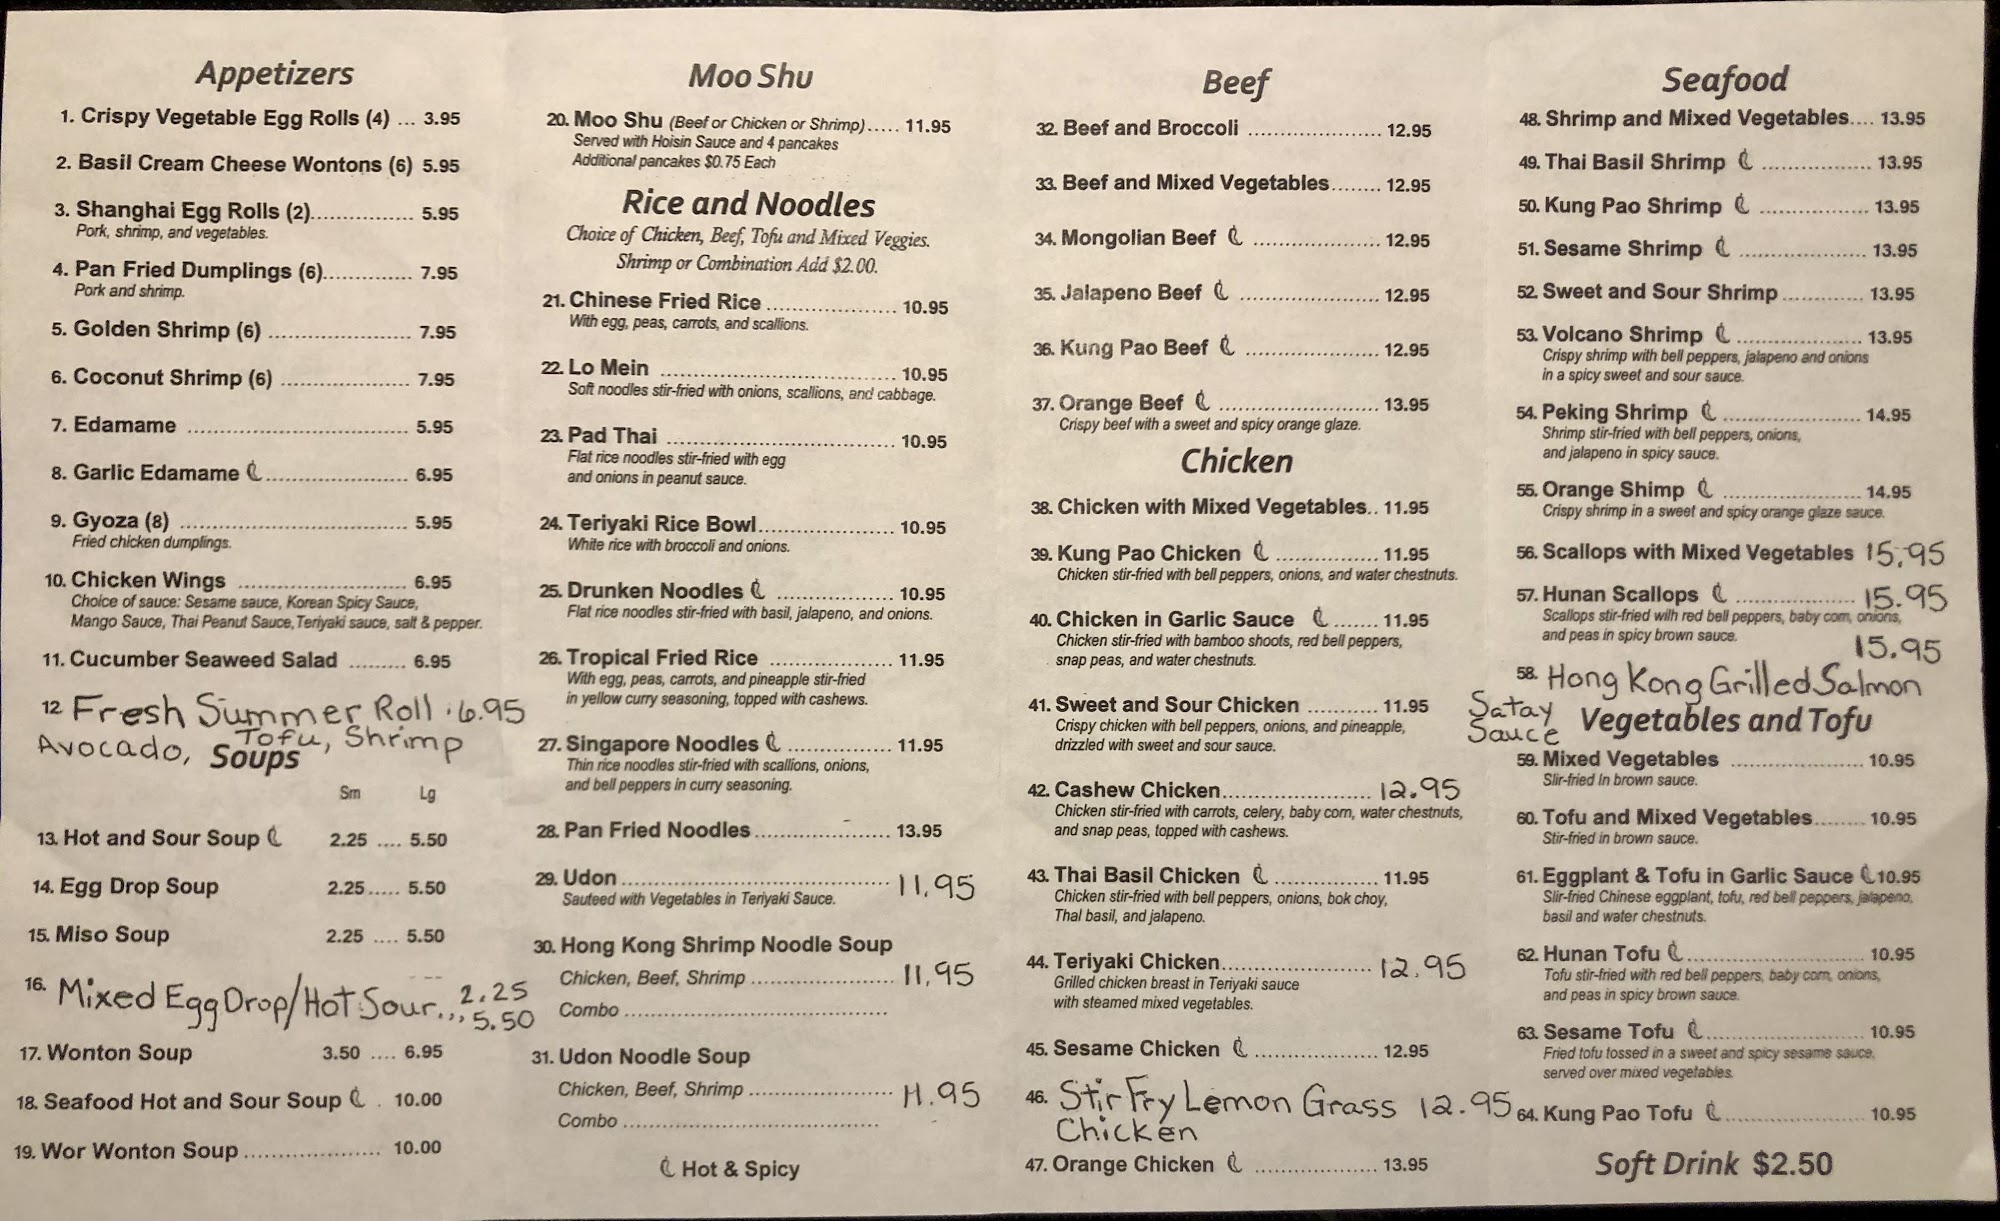 Appetizers
1. Crispy Vegetable Egg Rolls (4) ... 3.95
2. Basil Cream Cheese Wontons (6) 5.95
3. Shanghai Egg Rolls (2)................ 5.95
Pork, shrimp, and vegetables.
4. Pan Fried Dumplings (6).............. 7.95
Pork and shrimp.
5. Golden Shrimp (6) ...................... 7.95
6. Coconut Shrimp (6) .................... 7.95
7. Edamame .................................. 5.95
8. Garlic Edamame ...................... 6.95
9. Gyoza (8) ................................... 5.95
Fried chicken dumplings.
10. Chicken Wings .......................... 6.95
Choice of sauce: Sesame sauce, Korean Spicy Sauce,
Mango Sauce, Thai Peanut Sauce, Teriyaki sauce, salt & pepper.
11. Cucumber Seaweed Salad ......... 6.95
12 Fresh Summer Roll . 6.95
Avocado, Tofu, Shrimp
Soups
Sm Lg
13. Hot and Sour Soup 2.25 .... 5.50
14. Egg Drop Soup 2.25..... 5.50
15. Miso Soup 2.25 .... 5.50
16. Mixed Egg Drop/Hot Sour... 2.25
5.50
17. Wonton Soup 3.50 .... 6.95
18. Seafood Hot and Sour Soup . 10.00
19. Wor Wonton Soup..................... 10.00
Moo Shu
20. Moo Shu (Beef or Chicken or Shrimp)..... 11.95
Served with Hoisin Sauce and 4 pancakes
Additional pancakes $0.75 Each
Rice and Noodles
Choice of Chicken, Beef, Tofu and Mixed Veggies.
Shrimp or Combination Add $2.00.
21. Chinese Fried Rice .................... 10.95
With egg, peas, carrots, and scallions.
22. Lo Mein .................................... 10.95
Soft noodles stir-fried with onions, scallions, and cabbage.
23. Pad Thai ................................... 10.95
Flat rice noodles stir-fried with egg
and onions in peanut sauce.
24. Teriyaki Rice Bowl..................... 10.95
White rice with broccoli and onions.
25. Drunken Noodles .................. 10.95
Flat rice noodles stir-fried with basil, jalapeno, and onions.
26. Tropical Fried Rice ................... 11.95
With egg, peas, carrots, and pineapple stir-fried
in yellow curry seasoning, topped with cashews.
27. Singapore Noodles ................ 11.95
Thin rice noodles stir-fried with scallions, onions,
and bell peppers in curry seasoning.
28. Pan Fried Noodles..................... 13.95
29. Udon......................................... 11.95
Sauteed with Vegetables in Teriyaki Sauce.
30. Hong Kong Shrimp Noodle Soup
Chicken, Beef, Shrimp ...................... 11.95
Combo ........................................
31. Udon Noodle Soup
Chicken, Beef, Shrimp ...................... 11.95
Combo .......................................
Hot & Spicy
Beef
32. Beef and Broccoli ..................... 12.95
33. Beef and Mixed Vegetables........ 12.95
34. Mongolian Beef .................... 12.95
35. Jalapeno Beef ...................... 12.95
36. Kung Pao Beef ..................... 12.95
37. Orange Beef ......................... 13.95
Crispy beef with a sweet and spicy orange glaze.
Chicken
38. Chicken with Mixed Vegetables.. 11.95
39. Kung Pao Chicken ................ 11.95
Chicken stir-fried with bell peppers, onions, and water chestnuts.
40. Chicken in Garlic Sauce ....... 11.95
Chicken stir-fried with bamboo shoots, red bell peppers,
snap peas, and water chestnuts.
41. Sweet and Sour Chicken ........... 11.95
Crispy chicken with bell peppers, onions, and pineapple,
drizzled with sweet and sour sauce.
42. Cashew Chicken....................... 12.95
Chicken stir-fried with carrots, celery, baby corn, water chestnuts,
and snap peas, topped with cashews.
43. Thai Basil Chicken ................ 11.95
Chicken stir-fried with bell peppers, onions, bok choy,
Thai basil, and jalapeno.
44. Teriyaki Chicken....................... 12.95
Grilled chicken breast in Teriyaki sauce
with steamed mixed vegetables.
45. Sesame Chicken ................... 12.95
46. Stir Fry Lemon Grass 12.95
Chicken
47. Orange Chicken .................... 13.95
Seafood
48. Shrimp and Mixed Vegetables.... 13.95
49. Thai Basil Shrimp ................. 13.95
50. Kung Pao Shrimp ................. 13.95
51. Sesame Shrimp .................... 13.95
52. Sweet and Sour Shrimp............. 13.95
53. Volcano Shrimp .................... 13.95
Crispy shrimp with bell peppers, jalapeno and onions
in a spicy sweet and sour sauce.
54. Peking Shrimp ...................... 14.95
Shrimp stir-fried with bell peppers, onions,
and jalapeno in spicy sauce.
55. Orange Shimp ...................... 14.95
Crispy shrimp in a sweet and spicy orange glaze sauce.
56. Scallops with Mixed Vegetables 15.95
57. Hunan Scallops ................... 15.95
Scallops stir-fried with red bell peppers, baby corn, onions,
and peas in spicy brown sauce.
15.95
58. Hong Kong Grilled Salmon
Satay
Sauce
Vegetables and Tofu
59. Mixed Vegetables ..................... 10.95
Stir-fried in brown sauce.
60. Tofu and Mixed Vegetables........ 10.95
Stir-fried in brown sauce.
61. Eggplant & Tofu in Garlic Sauce 10.95
Stir-fried Chinese eggplant, tofu, red bell peppers, jalapeno,
basil and water chestnuts.
62. Hunan Tofu............................ 10.95
Tofu stir-fried with red bell peppers, baby corn, onions,
and peas in spicy brown sauce.
63. Sesame Tofu ........................ 10.95
Fried tofu tossed in a sweet and spicy sesame sauce,
served over mixed vegetables.
64. Kung Pao Tofu ..................... 10.95
Soft Drink $2.50